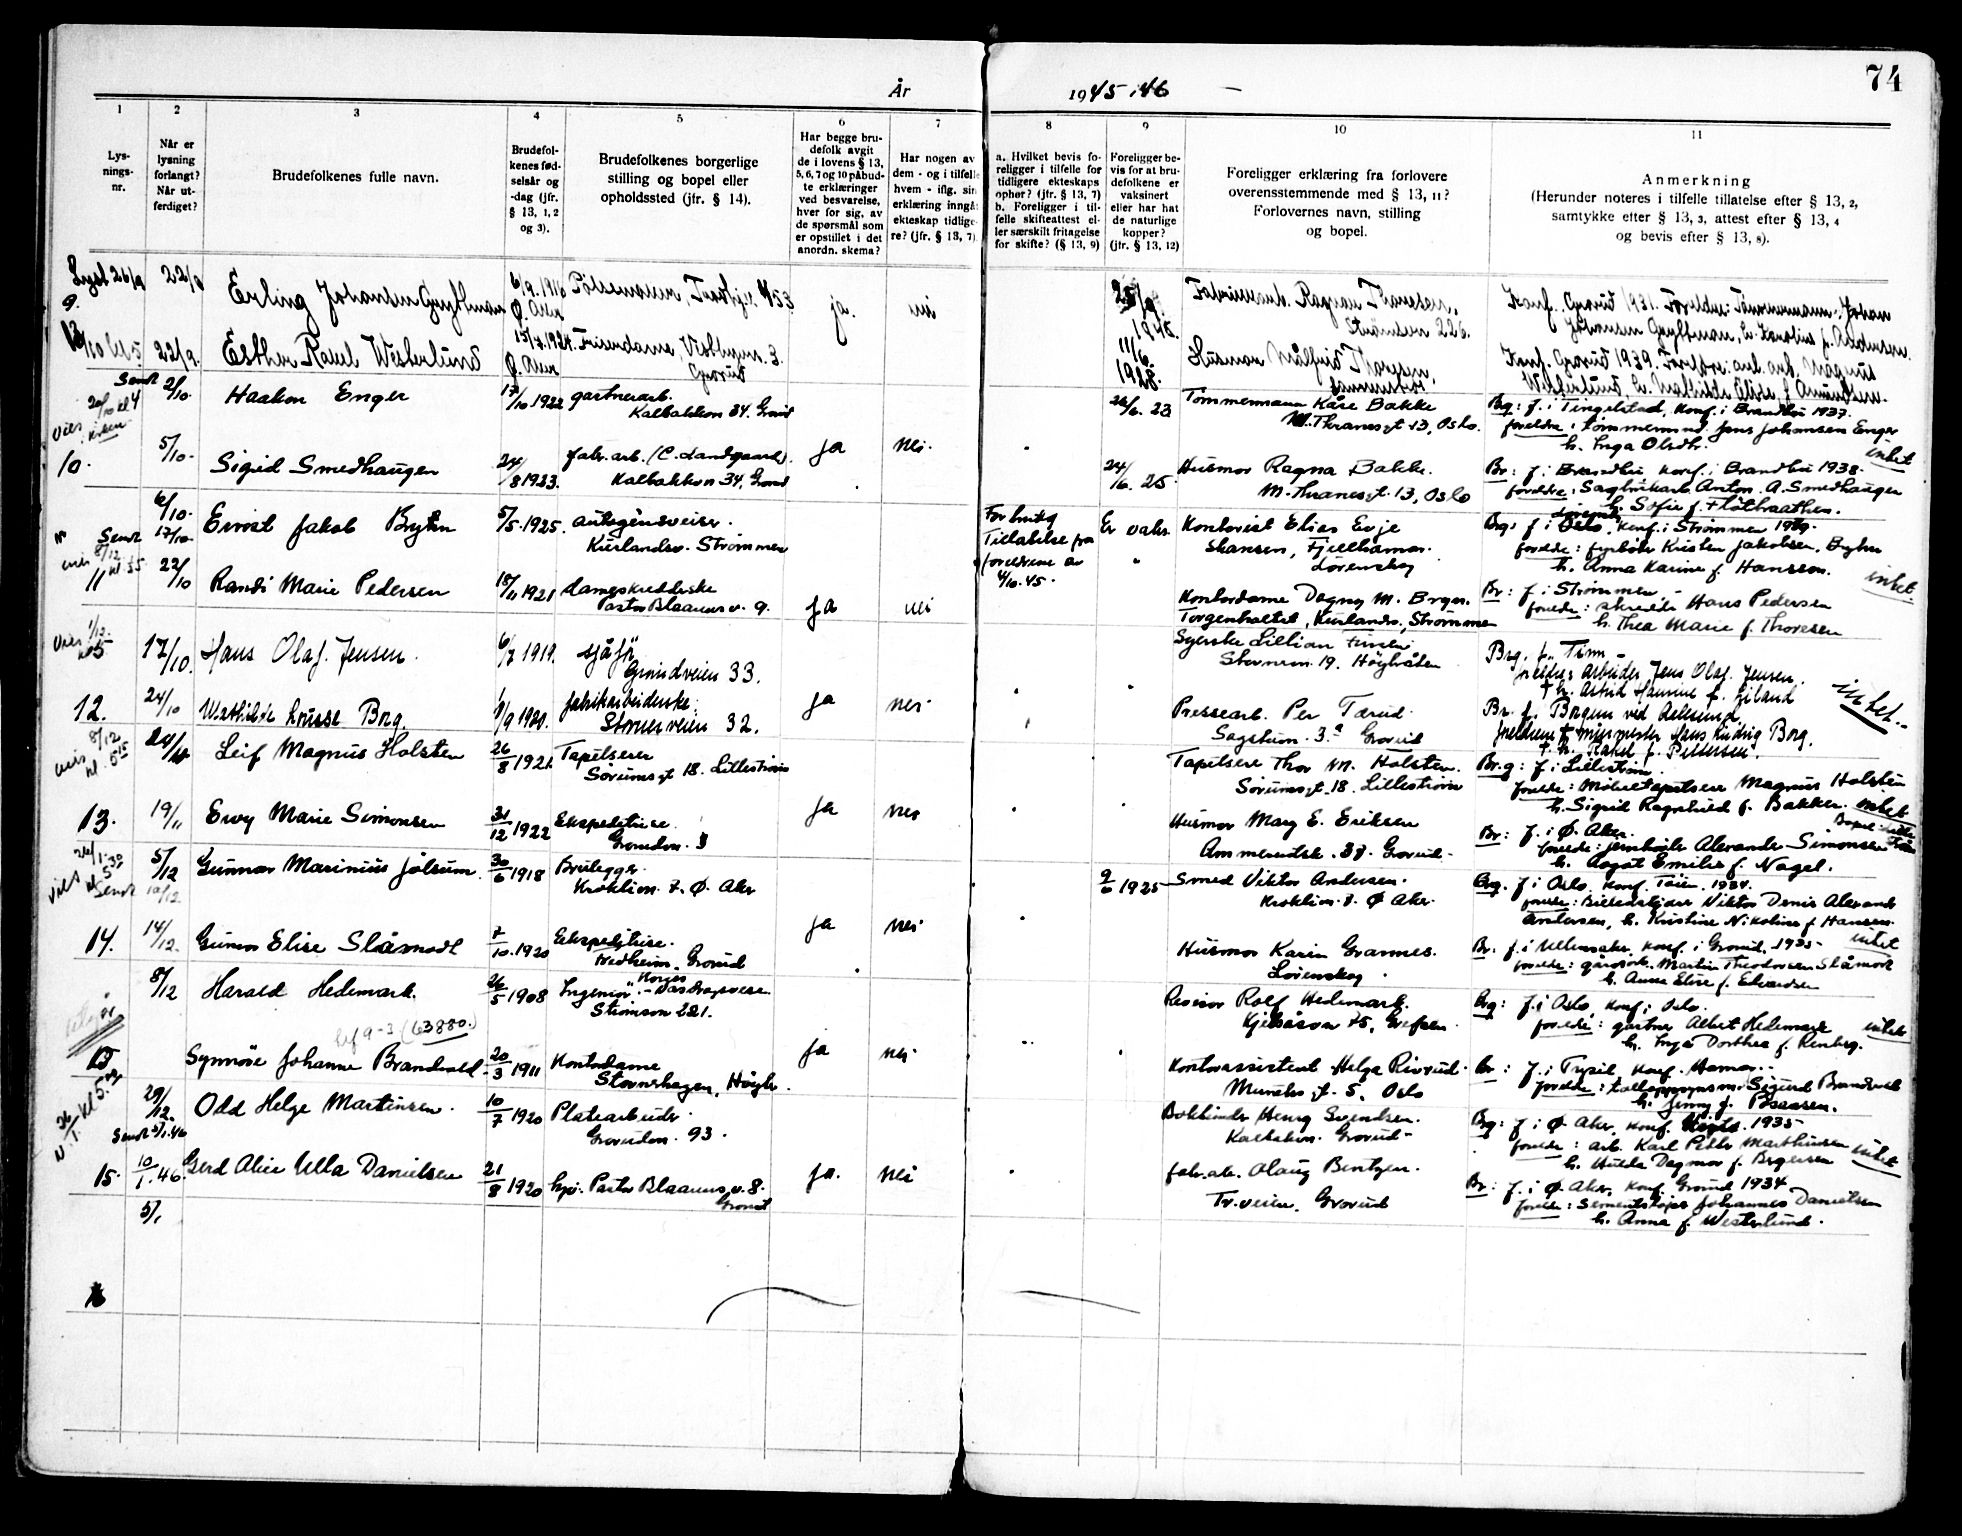 74
År
1945-46
1
2
3
4
5
6
7
8
9
10
11
Lys-
nings-
nr.
Når er
lysning
forlangt?
Når ut-
ferdiget?
Brudefolkenes fulle navn.
Brudefol-
kenes fød-
selsår og
-dag (jfr.
§ 13, 1, 2
og 3).
Brudefolkenes borgerlige
stilling og bopel eller
opholdssted (jfr. § 14).
Har begge bru-
defolk avgit
de i lovens § 13,
5, 6, 7 og 10 påbud-
te erklæringer
ved besvarelse,
hver for sig, av
de spørsmål som
er opstillet i det
anordn. skema?
Har nogen av
dem - og i tilfelle
hvem - iflg. sin
erklæring inngå
ekteskap tidlige-
re? (jfr. § 13, 7)
a. Hvilket bevis fo-
religger i tilfelle for
tidligere ekteskaps
ophør? (jfr. § 13, 7)
b. Foreligger i til-
felle skifteattest el-
ler særskilt fritagelse
for skifte? (§ 13, 9)
Foreligger be-
vis for at bru-
defolkene er
vaksinert
eller har hat
de naturlige
kopper?
(jfr. § 13, 12)
Foreligger erklæring fra forlovere
overensstemmende med § 13, 11?
Forlovernes navn, stilling
og bopel.
Anmerkning
(Herunder noteres i tilfelle tillatelse efter § 13, 2,
samtykke efter § 13, 3, attest efter § 13, 4
og bevis efter § 13, 8).
9.
Erling Johansen
6/9.1918
Ø. Aker
ja.
nei
Strømsvn 226.
Konf. Grorud 1931. Foreldre: Tømmermann Johan
Johansen
22/9.
Esther Rakel Westerlund
Ø. Aker
Grorud
11/6.
1928.
Husmor Målfrid Thoresen,
Konf. Grorud 1939. Foreldre: arb. Magnus
Westerlund,
Amundsen.
Sendt 2/10.
Haakon Enger
17/10 1922
gartnerarb.
Kalbakken 34. Grorud
26/6. 23
Tømmermann Kåre Bakke
M. Thranesgt 13, Oslo.
Brg: f. i Tingelstad, konf. i Brandbu 1937.
foreldre: tømmermand Jens Johansen Enger
h. Inga Olsdtr.
intet
10.
5/10.
Sigrid Smedhaugen
24/8 1923.
fabr. arb.
Kalbakken 34. Grorud
ja
nei.
24/6. 25
Husmor Ragna Bakke.
M. Thranesgt. 13, Oslo
Br: f. i Brandbu konf. i Brandbu 1938.
foreldre: Sagbrukarb. Anton A. Smedhaugen
h. Sofie f. Fløtbraathen.
6/10.
Sendt 17/10.
Ernst Jakob Bryhn
5/5. 1925.
autogensveiser.
Kurlandsv. Strømmen
Tillatelse fra
foreldrene av
4/10.45.
Er vaks.
Kontorist Elias Evje
Skansen, Fjellhamar.
Lørenskog
Lørenskog
Brg: f. i Oslo, konf. i Strømmen
foreldre: fyrbøter Kristen Jakobsen Bryhn
h. Anna Karine f. Hanssen.
intet.
11
22/10
Randi Marie Pedersen
18/11 1921
dameskredderske
Pastor Blaauws v. 9.
ja
nei
Kontordame Dagny M. Bryn.
Torgenholtet, Kurlandsv., Strømmen
Br: f. i Strømmen.
foreldre: skredder Hans Pedersen
h. Thea Marie f. Thoresen
Vies 1/12.
kl 5
17/10.
Hans Olaf Jensen.
6/7 1919.
sjåfør
Grorudveien 33.
Syerske Lillian
Stovnervn. 19. Høybråten
Brg. f. Tinn
foreldre: Arbeider Jens Olaf Jensen.
12.
24/10
Mathilde Louise Borg.
1/9 1920.
fabrikarbeiderske.
Stovnerveien 32.
ja
nei.
Pressearb. Per Tærud.
Grorud
intet.
foreldrene † murmester Hans Ludvig Borg.
† h. Rakel f. Pettersen.
vies 8/12
kl. 5 15
24/10
Leif Magnus Holsten
26/8 1921
Tapetserer
Sørumsgt 18. Lillestrøm
Tapetserer Thor M. Holsten.
Sørumsgt. 18. Lillestrøm
Brg: f. i Lillestrøm.
foreldre: Møbeltapetserer Magnus Holsten
h. Sigrid Ragnhild f. Bakken.
intet
13.
19/11
Evy Marie Simonsen
31/12 1922
Ekspeditrise
Grorudvn. 3
ja
nei
Husmor Mary E. Eriksen
Ammerudsk. 37. Grorud.
Br: f. i Ø. Aker.
foreldre: jernhøvler Alexander Simonsen
h. Aagot Emilie f. Nagel.
Vies 26/1. kl. 5 30
Sendt 10/12
5/12
Gunnar Marinius Jølsum.
30/6 1918
Brulegger.
Krokliven 7. Ø. Aker
9/6 1925
Smed Viktor Andersen.
Krokliven 7. Ø Aker.
Brg. f. i Oslo. konf. Tøien. 1934.
foreldre: Billedskjærer Viktor Denis Alexander
Andersen, h. Kristine Nikoline f. Hansen.
intet
14.
14/12.
Gunvor Elise Slåmodt
7/10.1920
Ekspeditrise.
Nedheim, Grorud
ja
nei
Husmor Karin Grannes.
Lørenskog
Br: f. i Ullensaker, konf. i Grorud. 1935.
foreldre: gårdsarb. Martin Theodorsen Slåmodt
h. Anna Elise f. Edvardsen
8/12
Harald Hedemark.
26/5 1908
Ingeniør - Norges Vasdragsvesen.
Strømsvn 221.
Revisor Rolf Hedemark.
Kjelsåsvn 75, Grefsen.
Brg: f. i Oslo, konf. i Oslo.
foreldre: gartner Albert Hedemark
h. Inga Dorthea f. Renberg.
intet
lif 9-3 (63880.)
15
Synnøve Johanne Brandvold.
20/3 1911
Kontordame
Stovnerhagen, Høybr.
ja
nei.
Kontorassistent Helga Risrud.
Munchs gt. 5. Oslo
Br: f. i Trysil konf. Hamar.
foreldre: tolloppsynsm. Sigurd Brandvold
h. Jenny f. Paasen.
26/1. kl 5.
29/12.
Sendt 5/1.46
Odd Helge Martinsen.
10/7 1920
Platearbeider.
Grorudvn. 93.
Bokbinder Henry Svendsen.
Kalbakkn. Grorud.
Brg: f. i Ø. Aker, konf. 1935
foreldre: arb. Karl Petter Marthinsen
h. Hulda Dagmar f. Børgersen
intet
15.
10/1.46.
Gerd Alice Ulla Danielsen
21/8 1920
hjv. Pastor Blaauws v. 8.
Grorud
ja.
nei
fabr.arb. Olaug Bentzen.
Tr.veien. Grorud
Br: f. i Ø. Aker, konf. Grorud 1934
foreldre: Sementstøper Johannes Danielsen
h. Anna f. Westerlund.
5/1
16